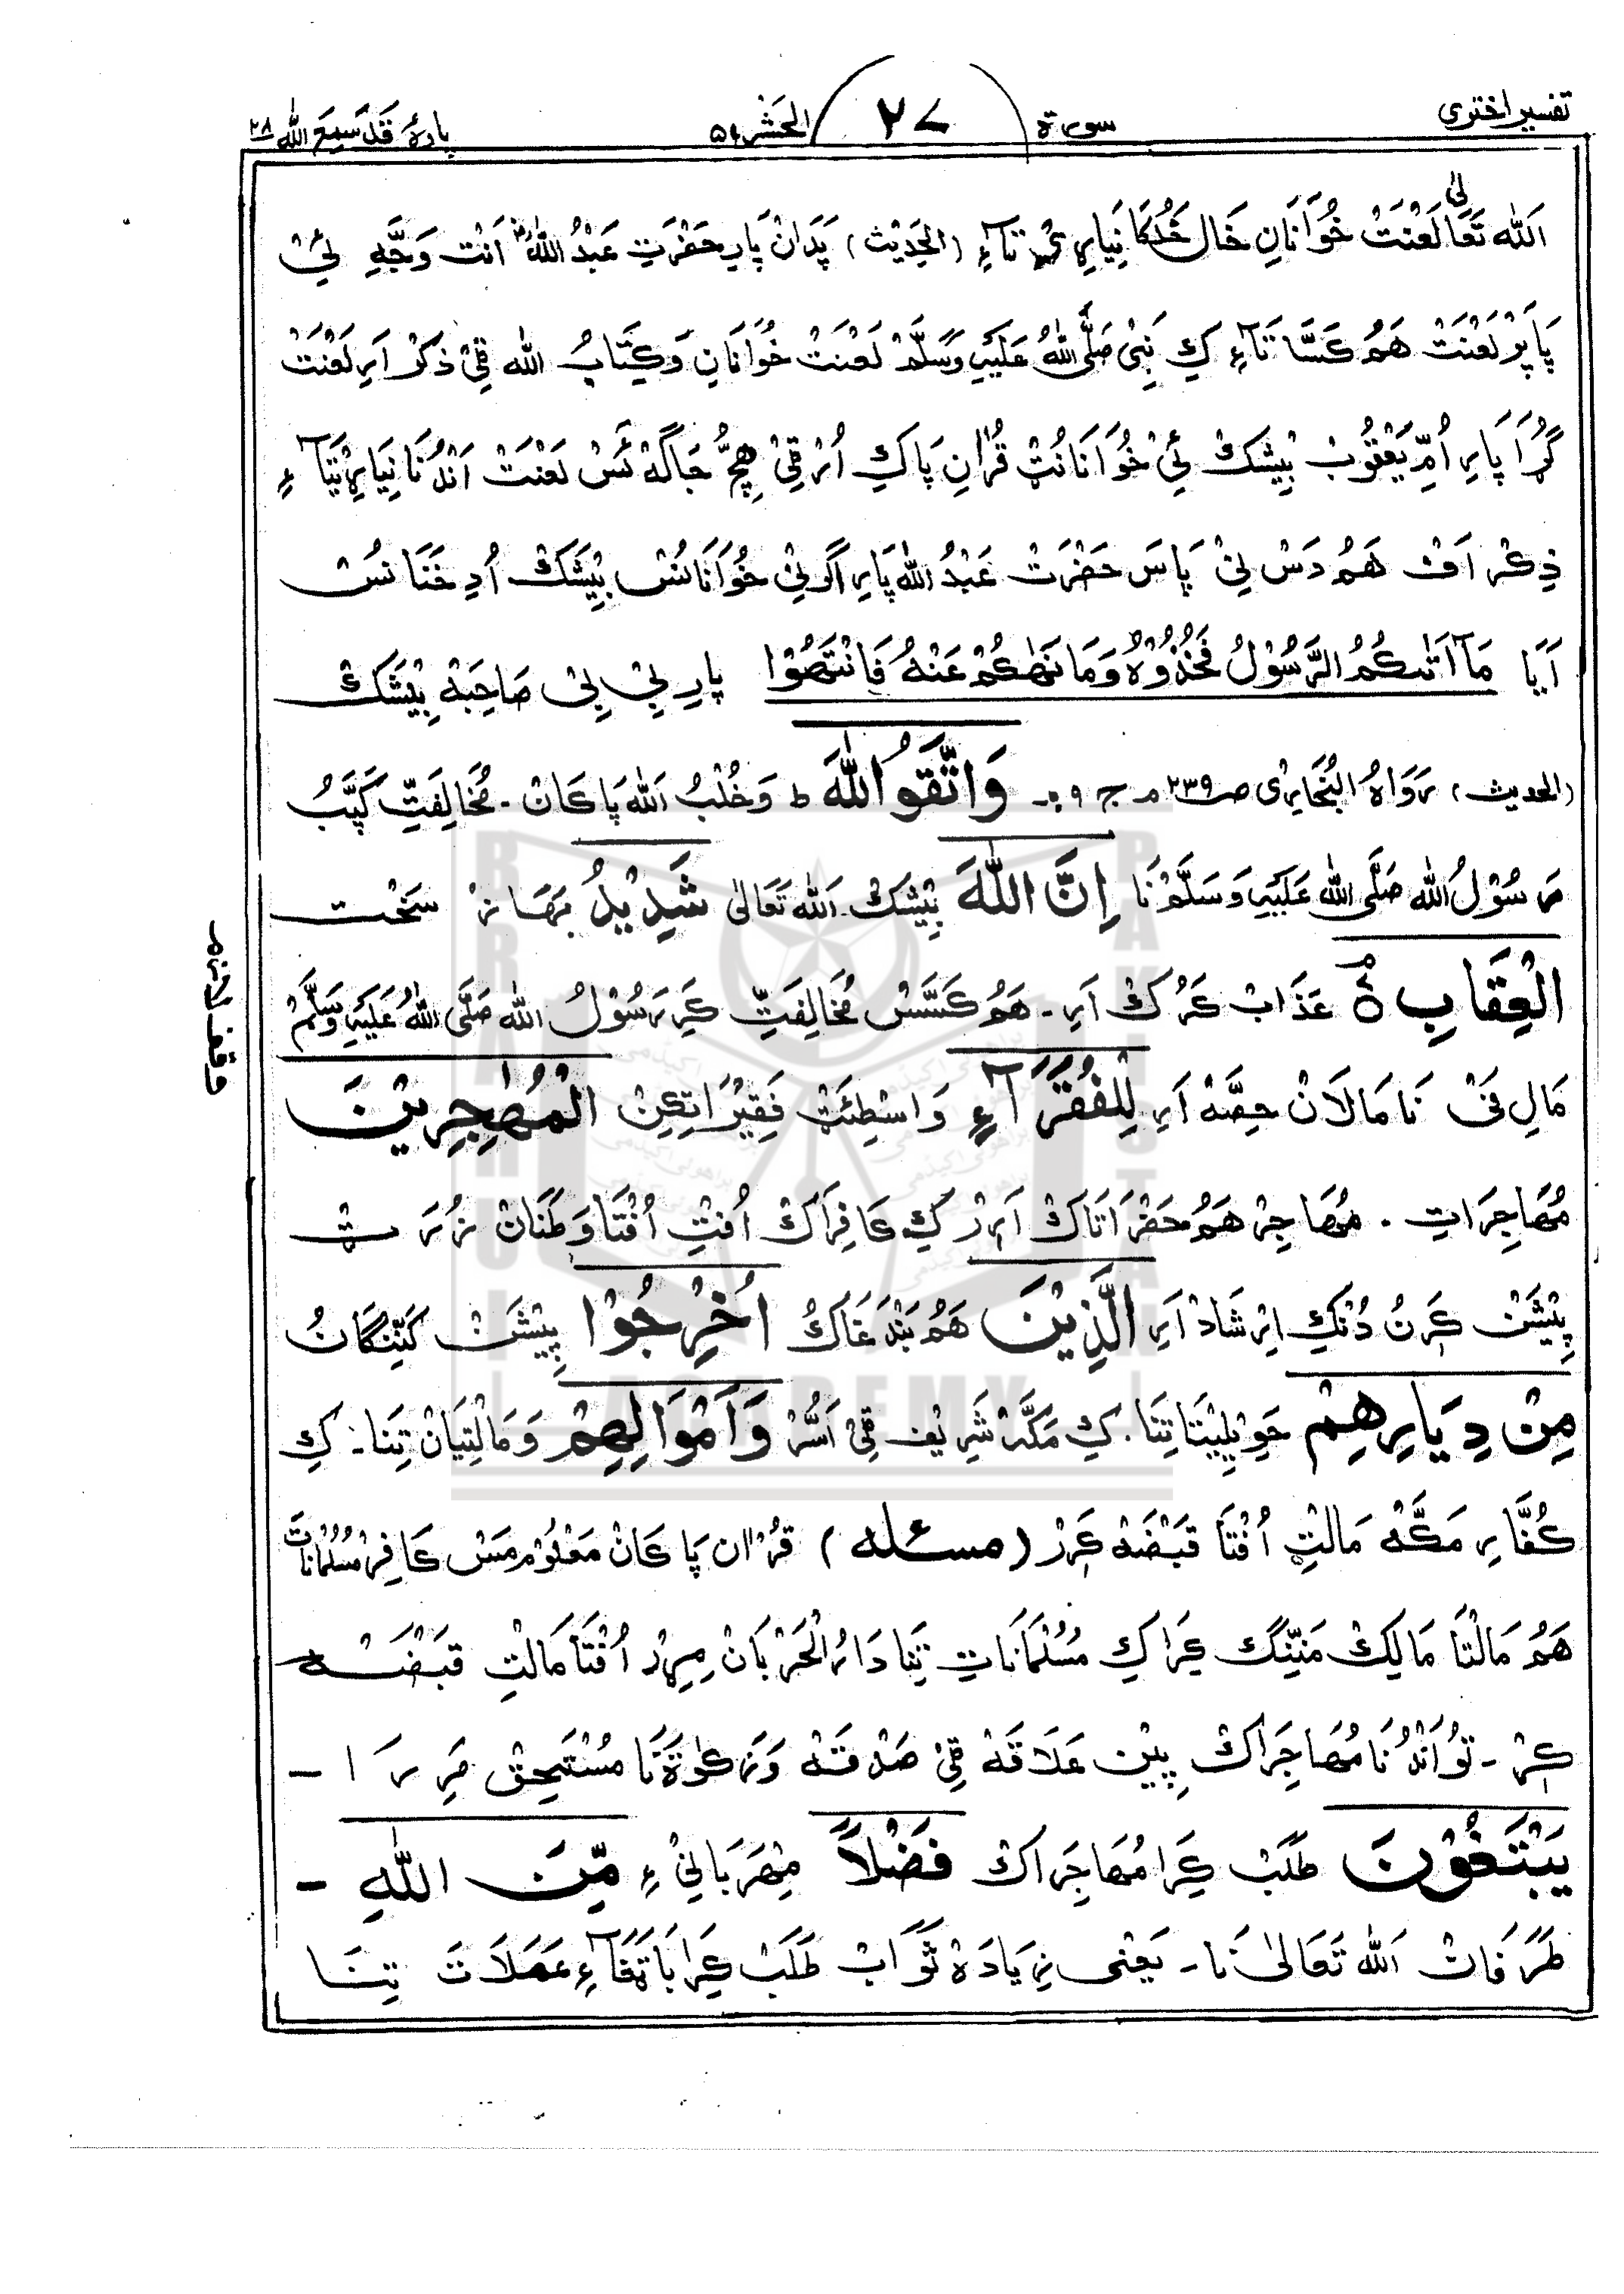 تفسیر اختری
سورة
٢٧
الحشر ٥٩
پارۀ قَدْ سَمِعَ اللهُ ٢٨
اَللّٰه تَعَالیٰ لَعْنَتْ خُوَانَانِ خَال خَلُکَا نِیَارِی تَآءِ (الحَدِیْث) پَدَانْ پَارِ حَضْرَتِ عَبْدُ اللّٰهُ اَنْت وَجَّهِ لَیْ
پَاپَرْ لَعْنَتْ هَمُ کَسَّا تَآءِ کِ نَبِیْ صَلَّی اللّٰهُ عَلَیْهِ وَسَلَّمْ لَعْنَتْ خُوَانَانِ وَکِتَابُ اللّٰه قِیْ ذِکَرْ اَرِ لَعْنَتْ
گُڑَا پَارِ اُمِّ یَعْقُوْبْ بِیْشَکْ لَیْ خُوَانَانُٹ قُرْاٰنِ پَاکِ اُرْقِیْ هِچُّ جَاگَهْ نَسْ لَعْنَتْ اَنْدُنَا نِیَارِیْتِیَآءِ
ذِکْر اَفْ هَمُ دَسْ لِیْ پَاسَ حَضْرَتْ عَبْدُ اللّٰه پَارِ اَگر لِیْ خُوَانَانُسْ بِیْشَکْ اُدِ خَنَانُسْ
اَیَا مَآ اٰتٰىكُمُ الرَّسُوْلُ فَخُذُوْهُ وَمَا نَهٰىكُمْ عَنْهُ فَانْتَهُوْا پَارِ لِیْ بِیْ صَاحِبَهْ بِیْشَکْ
(الحدیث) رَوَاهُ الْبُخَارِی صـ ٢٣٩ ج ٩ وَاتَّقُوا اللّٰهَ ط وَخُلْبُ اَللّٰه پَاکَانْ۔ مُخَالِفَتِ کَپَّبُ
رَسُوْلُ اللّٰه صَلَّی اللّٰه عَلَیْهِ وَسَلَّمْ نَا اِنَّ اللّٰهَ بِیْشَکْ اَللّٰه تَعَالیٰ شَدِیْدُ بَهَازْ سَخْت
الْعِقَابِ ۘ عَذَابْ کَرُکْ اَرِ۔ هَمُ کَسَّسْ مُخَالِفَتِ کَرِ رَسُوْلُ اللّٰه صَلَّی اللّٰهُ عَلَیْهِ وَسَلَّمْ
مَالِ فَیْ نَا مَالَانْ حِصَّهْ اَرِ لِلْفُقَرَآءِ وَاسْطِئَٹ فَقِیْرَاتِکِنْ الْمُهٰجِرِیْنَ
مُهَاجِرَاتِ۔ مُهَاجِرْ هَمُ حَضْرَاتَاکْ اَرِرْ کِ کَافِرَاکْ اُفْتِ اُفْتَا وَطَنَانْ زُرَتْ
پِیْشَنْ کَرِنُ دُنْکِ اِرْشَادْ اَرِ الَّذِیْنَ هَمُ بَنْدَغَاکْ اُخْرِجُوْا پِیْشَنْ کَنِّنْگَانُ
مِنْ دِیَارِهِمْ حَوِیْلِیْتَا تِنَا۔ کِ مَکَّه شَرِیْف قِیْ اَسُّرْ وَاَمْوَالِهِمْ وَمَالْتِیَانْ تِنَا۔ کِ
کُفَّارِ مَکَّهْ مَالتِ اُفْتَا قَبْضَهْ کَرِرْ (مسئلہ) قُرْاٰن پَاکَانْ مَعْلُوْمْ مَسْ کَافِرْ مُسُلْمَانَاتَ
هَمُ مَالْتَا مَالِکْ مَنِّنْگ کِرَاکِ مُسُلْمَانَاتِ تِنَا دَارُ الْحَرْبَانْ اُفْتَا مَالتِ قَبْضَه
کِرْ۔ تَوْ اَنْدُنَا مُهَاجِرَاکْ پِیْن عَلَاقَهْ قِیْ صَدْقَهْ وَزَکٰوةَنَا مُسْتَحِقْ مَرِرَا۔
یَبْتَغُوْنَ طَلَبْ کِرَا مُهَاجِرَاکْ فَضْلًا مِهْرَبَانِیْءِ مِّنَ اللّٰهِ۔
طَرَفَانْ اَللّٰه تَعَالیٰ نَا۔ یَعْنِی زِیَادَهْ ثَوَابْ طَلَبْ کِرَا عَمَلَاتَ تِنَا
وقف لازم
BRAHUI ACADEMY PAKISTAN
براهوئی اکیڈمی